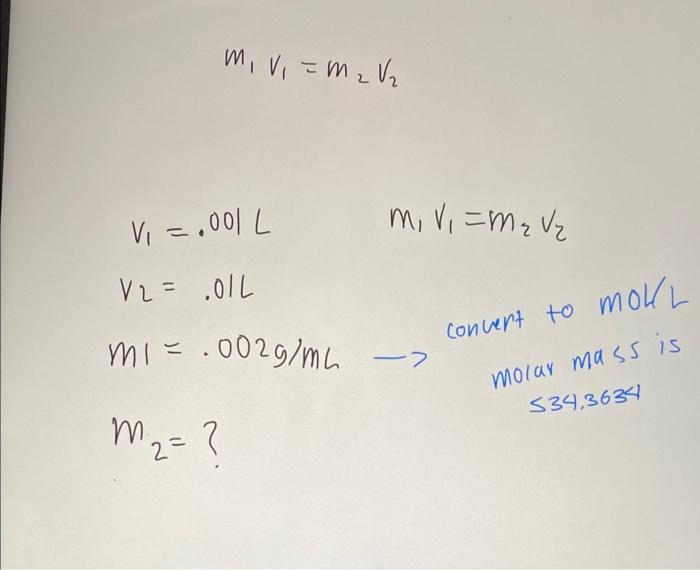 m₁ V₁ = m₂ V₂
V₁ = .001 L
m₁ V₁ = m₂ V₂
V2 = .01L
m1 = .002g/mL → convert to mol/L
molar mass is
534.3634
m₂ = ?